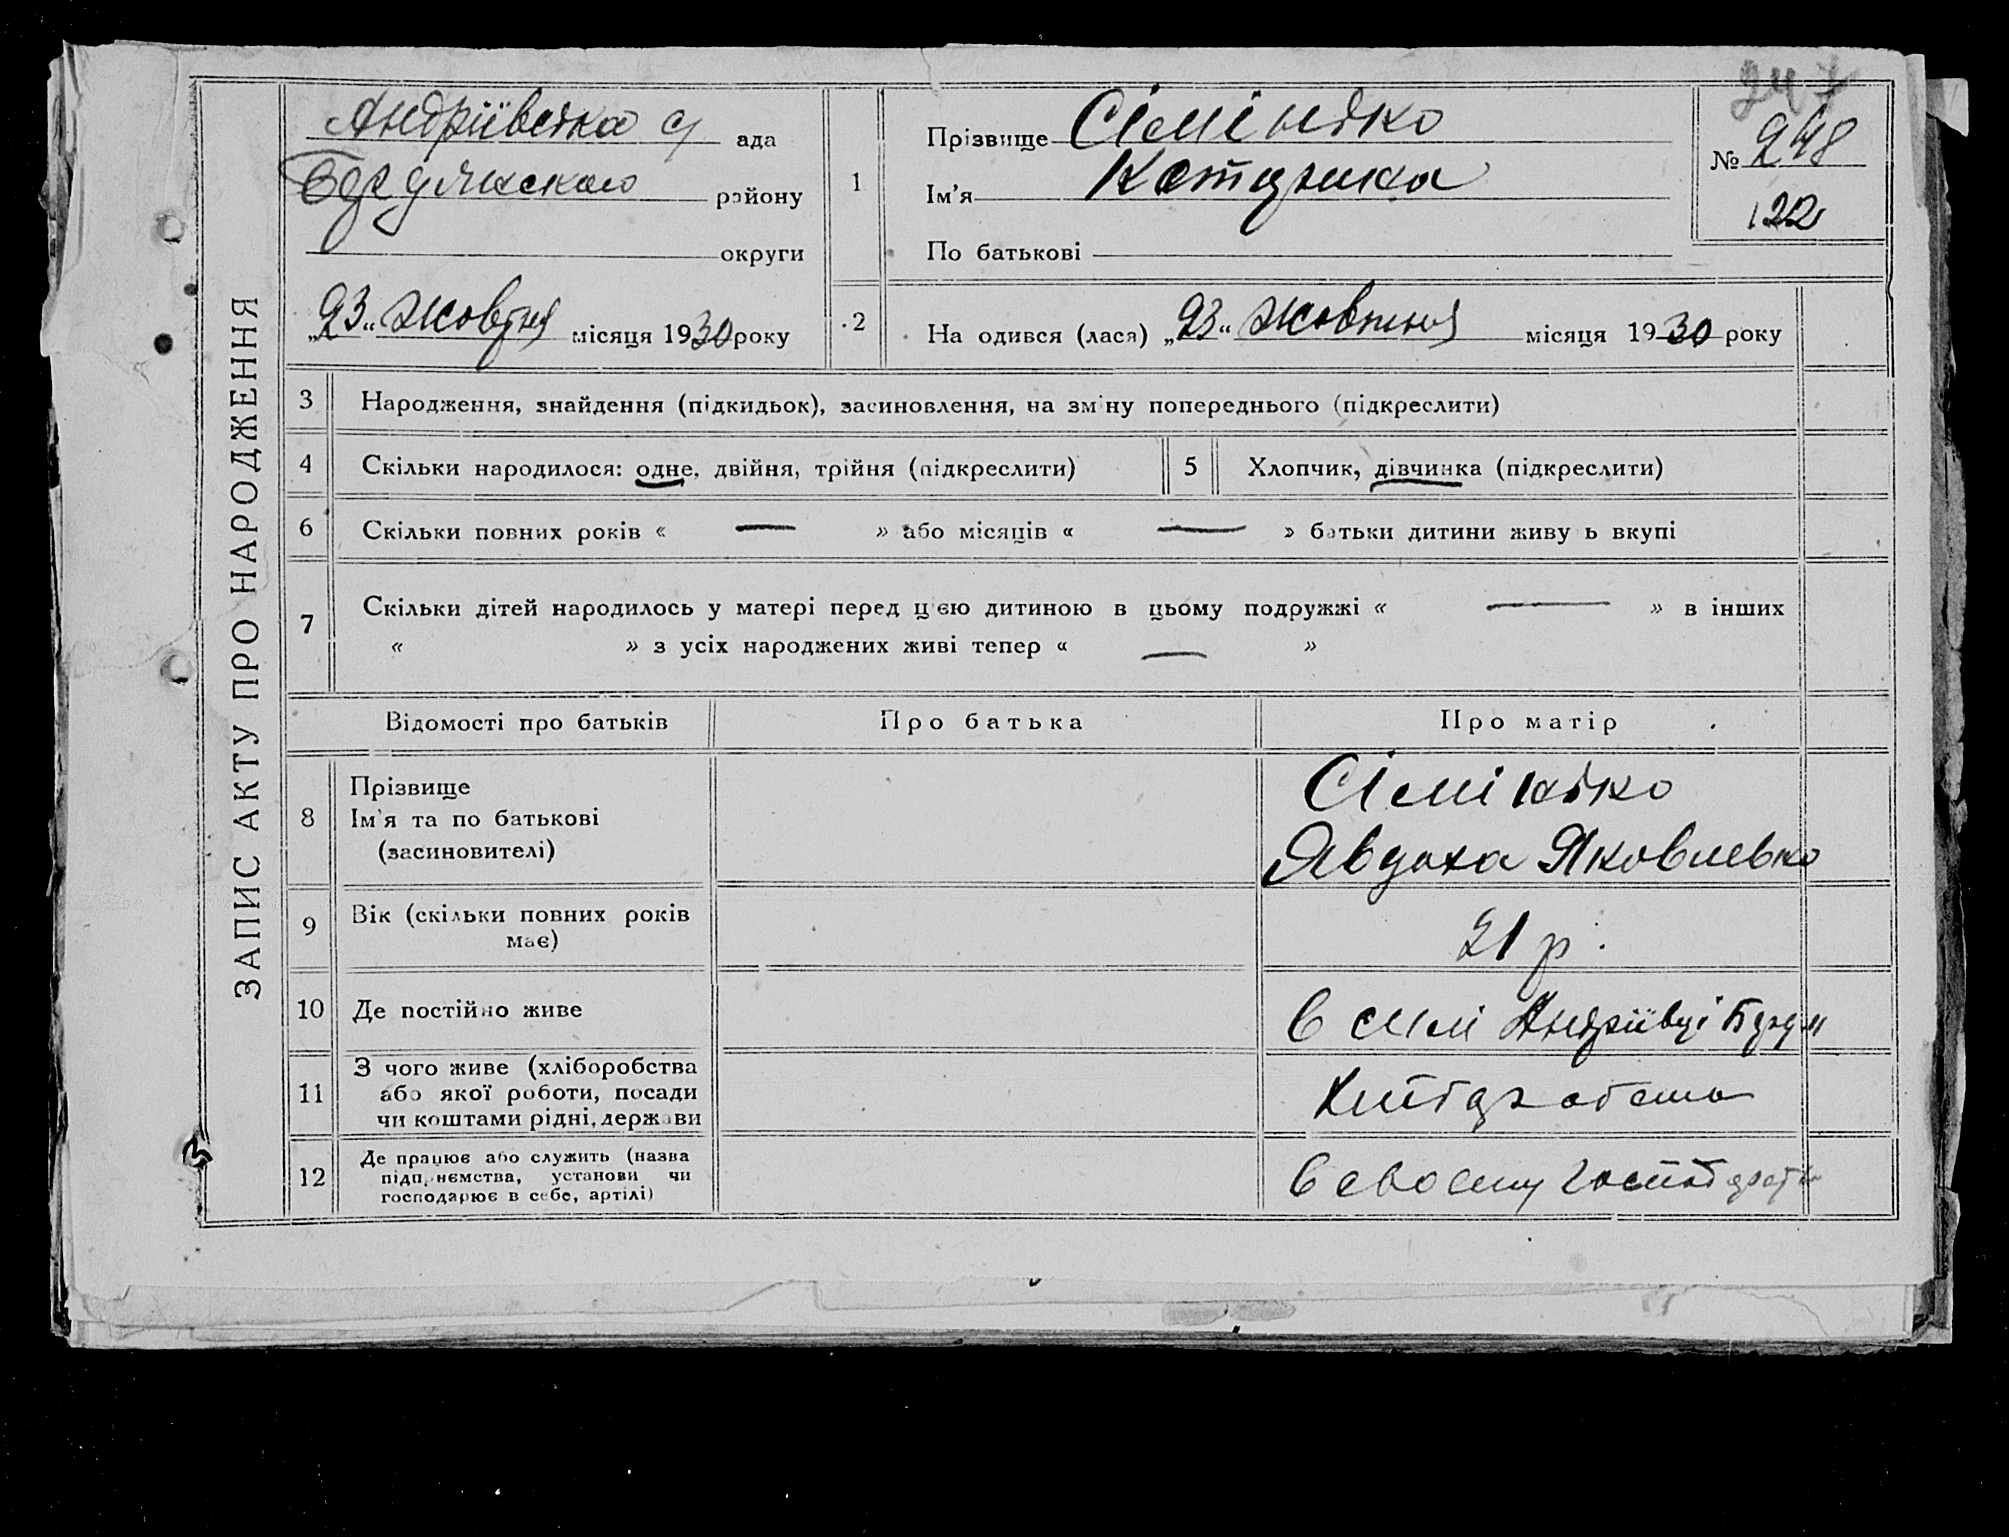 ЗАПИС АКТУ ПРО НАРОДЖЕННЯ
Андріївська с/ ада
району
округи
„23“ Жовтня місяця 1930 року
1
Прізвище Сімінько
Ім'я Катерина
По батькові
247
№ 248
122
2
На одився (лася) „23“ Жовтня місяця 1930 року
3 Народження, знайдення (підкидьок), засиновлення, на зміну попереднього (підкреслити)
4 Скільки народилося: одне, двійня, трійня (підкреслити)
5 Хлопчик, дівчинка (підкреслити)
6 Скільки повних років « — » або місяців « — » батьки дитини живу ь вкупі
7 Скільки дітей народилось у матері перед цією дитиною в цьому подружжі « — » в інших
« » з усіх народжених живі тепер « — »
Відомості про батьків
Про батька
Про матір
8 Прізвище
Ім'я та по батькові
(засиновителі)
Сімінько
Явдоха Яковлевна
9 Вік (скільки повних років
має)
21 р.
10 Де постійно живе
в селі Андріївці
11 З чого живе (хліборобства
або якої роботи, посади
чи коштами рідні, держави
12 Де працює або служить (назва
підприємства, установи чи
господарює в себе, артілі)
В своєму господарстві